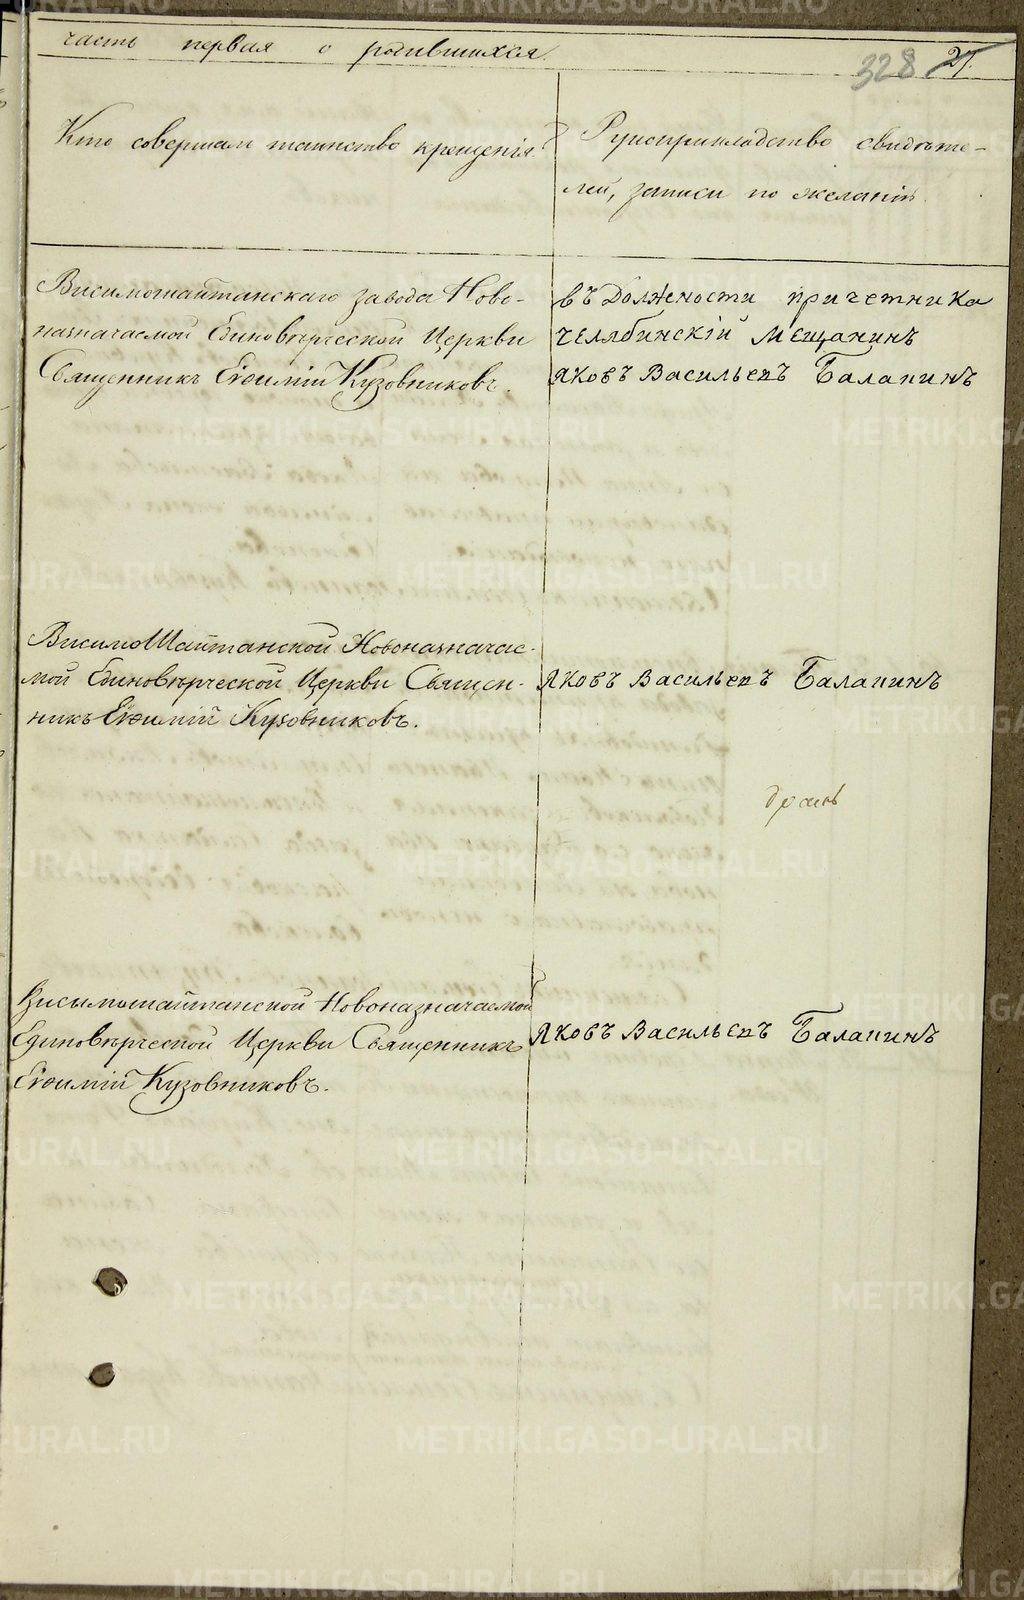 часть первая о родившихся.
328 27.
Кто совершал таинство крещенія.
Рукоприкладство свидѣте-
лей, записи по желанію.
Висимошайтанскаго завода Ново-
назначаемой Единовѣрческой Церкви
Священникъ Евѳимій Кузовниковъ.
въ Должности причетника
челябинскій мещанинъ
Яковъ Васильевъ Балапинъ
ВисимоШайтанской Новоназначае-
мой Единовѣрческой Церкви Священ-
никъ Евѳимій Кузовниковъ.
Яковъ Васильевъ Балапинъ
Висимошайтанской Новоназначаемой
Единовѣрческой Церкви Священникъ
Евѳимій Кузовниковъ.
Яковъ Васильевъ Балапинъ
METRIKI.GASO-URAL.RU